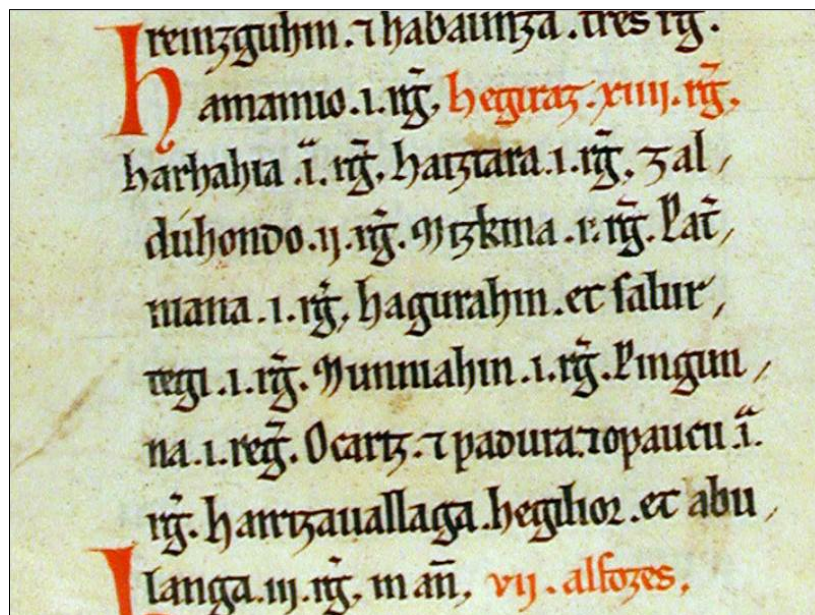 hreinzguhin. ⁊ habaunza. tres rg̃.
hamamio. i. rg̃. hegiraz. xiiii. rg̃.
harhahia .ĩ. rg̃. haiztara. i. rg̃. zal
duhondo. ii. rg̃. Mizkina. i. rg̃. Pat̃
niana. i. rg̃. hagurahin. et salur
tegi. i. rg̃. Munniahin. i. rg̃. Pingun
na. i. reg̃. Ocariz. ⁊ padura. ⁊ opaucu ĩ.
rg̃. harrizauallaga. hegilior. et abu
langa. iii. rg̃. in añ. vii. alfozes.